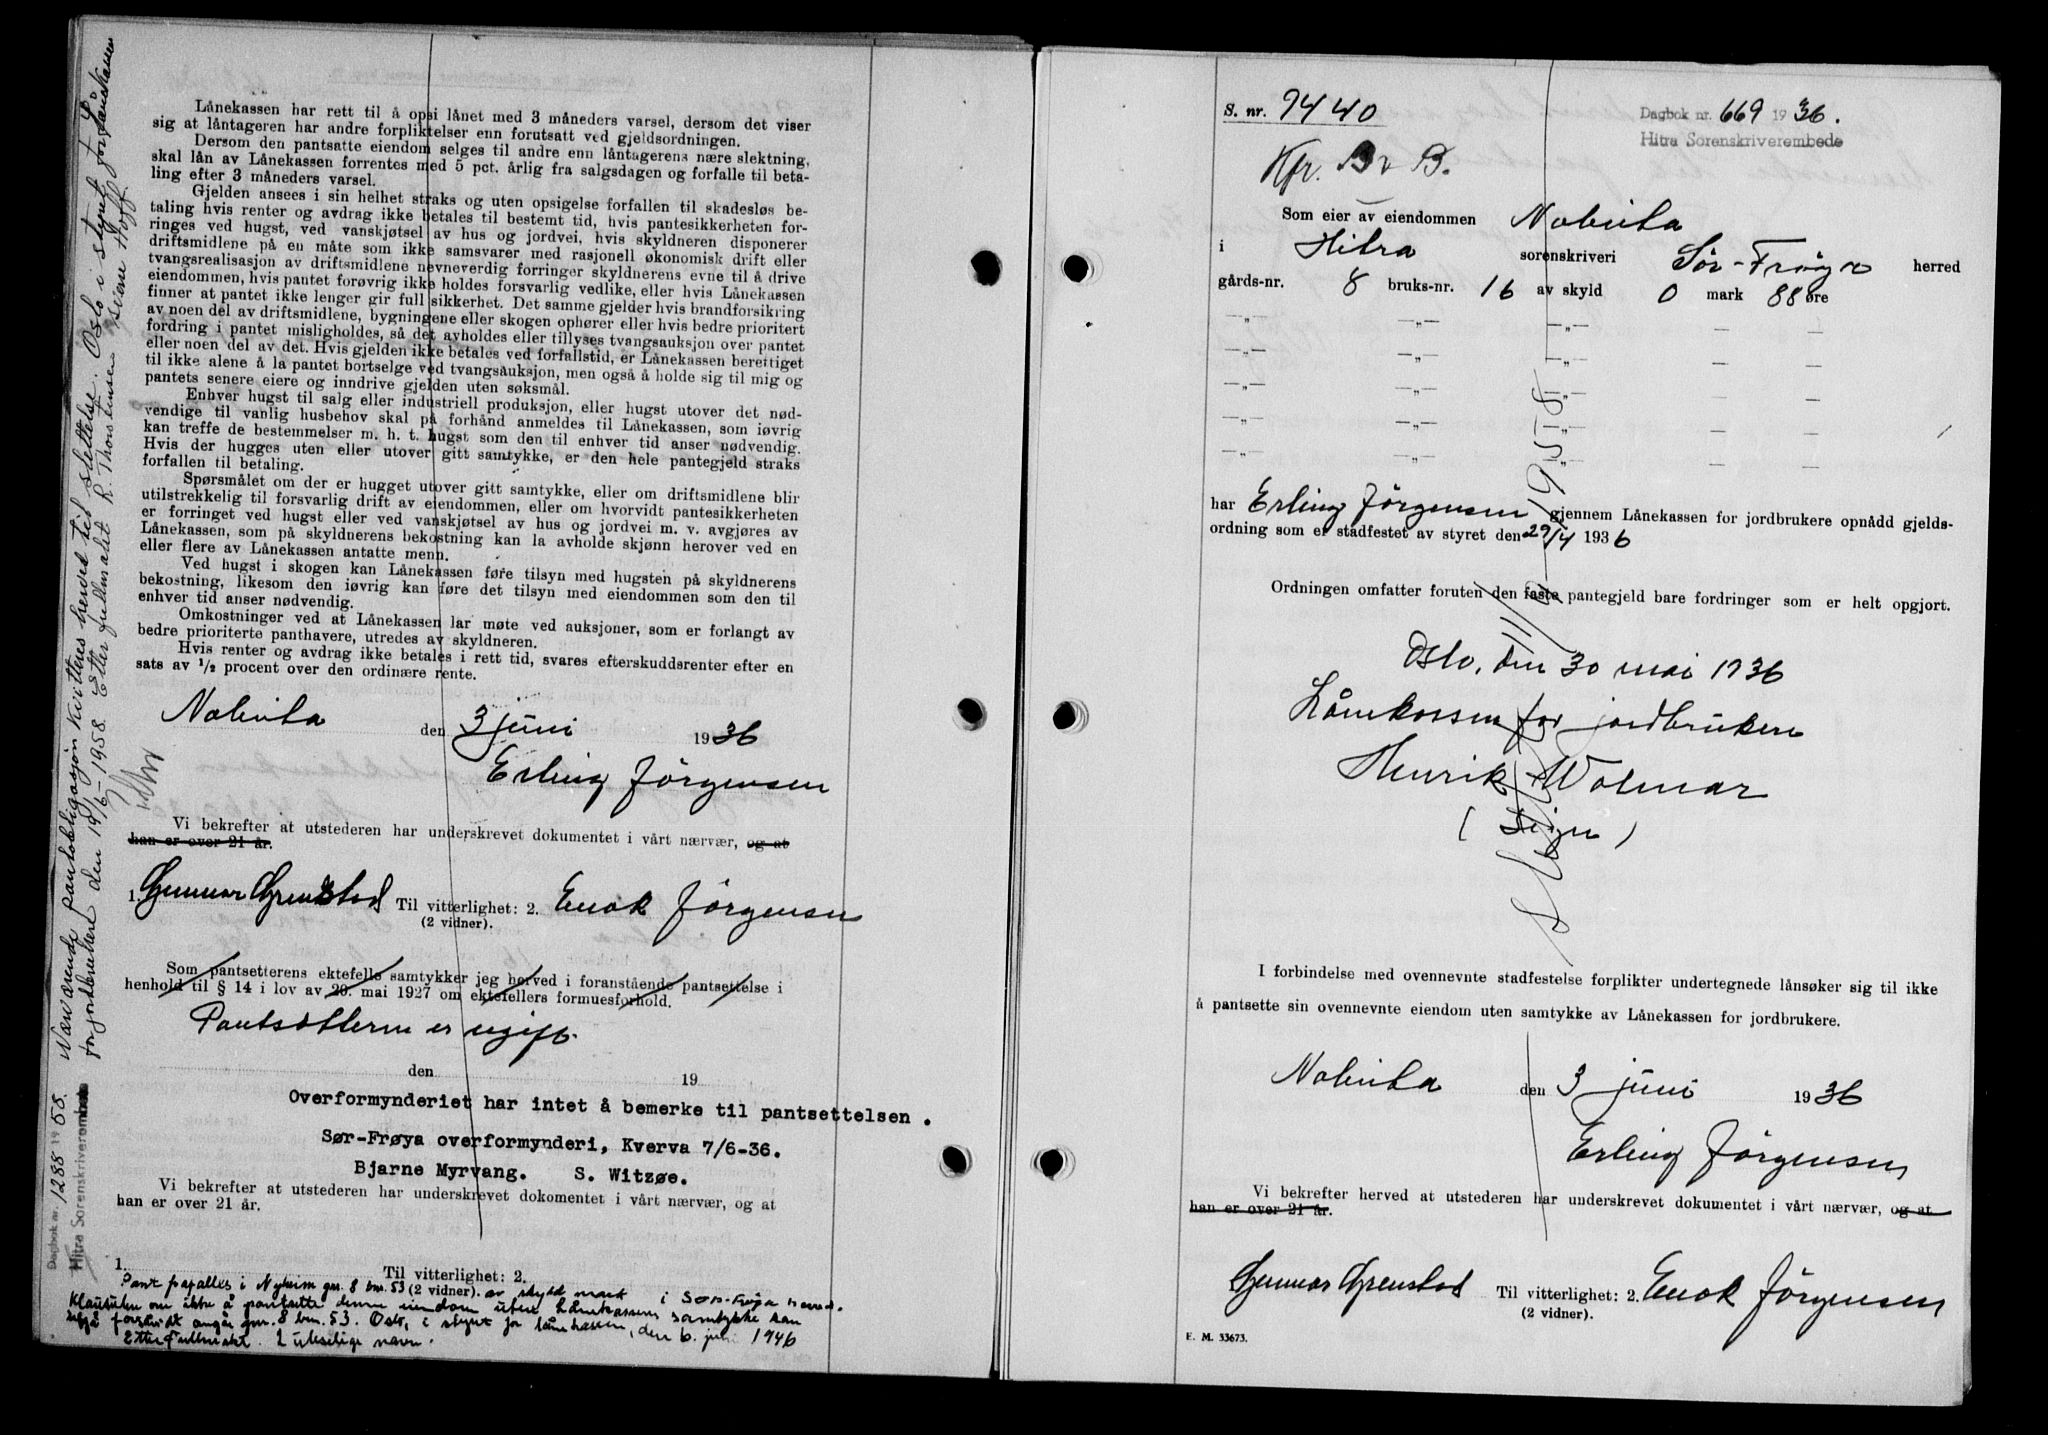 Lånekassen har rett til å opsi lånet med 3 måneders varsel, dersom det viser
sig at låntageren har andre forpliktelser enn forutsatt ved gjeldsordningen.
Dersom den pantsatte eiendom selges til andre enn låntagerens nære slektning,
skal lån av Lånekassen forrentes med 5 pct. årlig fra salgsdagen og forfalle til beta-
ling efter 3 måneders varsel.
Gjelden ansees i sin helhet straks og uten opsigelse forfallen til skadesløs be-
taling hvis renter og avdrag ikke betales til bestemt tid, hvis pantesikkerheten for-
ringes ved hugst, ved vanskjøtsel av hus og jordvei, hvis skyldneren disponerer
driftsmidlene på en måte som ikke samsvarer med rasjonell økonomisk drift eller
tvangsrealisasjon av driftsmidlene nevneverdig forringer skyldnerens evne til å drive
eiendommen, hvis pantet forøvrig ikke holdes forsvarlig vedlike, eller hvis Lånekassen
finner at pantet ikke lenger gir full sikkerhet. Det samme gjelder hvis brandforsikring
av noen del av driftsmidlene, bygningene eller skogen ophører eller hvis bedre prioritert
fordring i pantet misligholdes, så det avholdes eller tillyses tvangsauksjon over pantet
eller noen del av det. Hvis gjelden ikke betales ved forfallstid, er Lånekassen berettiget
til ikke alene å la pantet bortselge ved tvangsauksjon, men også å holde sig til mig og
pantets senere eiere og inndrive gjelden uten søksmål.
Enhver hugst til salg eller industriell produksjon, eller hugst utover det nød-
vendige til vanlig husbehov skal på forhånd anmeldes til Lånekassen, som iøvrig
kan treffe de bestemmelser m. h. t. hugst som den til enhver tid anser nødvendig.
Hvis der hugges uten eller utover gitt samtykke, er den hele pantegjeld straks
forfallen til betaling.
Spørsmålet om der er hugget utover gitt samtykke, eller om driftsmidlene blir
utilstrekkelig til forsvarlig drift av eiendommen, eller om hvorvidt pantesikkerheten
er forringet ved hugst eller ved vanskjøtsel av hus og jordvei m. v. avgjøres av
Lånekassen, som på skyldnerens bekostning kan la avholde skjønn herover ved en
eller flere av Lånekassen antatte menn.
Ved hugst i skogen kan Lånekassen føre tilsyn med hugsten på skyldnerens
bekostning, likesom den iøvrig kan føre det tilsyn med eiendommen som den til
enhver tid anser nødvendig.
Omkostninger ved at Lånekassen lar møte ved auksjoner, som er forlangt av
bedre prioriterte panthavere, utredes av skyldneren.
Hvis renter og avdrag ikke betales i rett tid, svares efterskuddsrenter efter en
sats av 1/2 procent over den ordinære rente.
Nabeita den 3 juni 1936
Erling Jörgensen
Vi bekrefter at utstederen har underskrevet dokumentet i vårt nærvær, og at
han er over 21 år.
1. Gunnar Grenstad Til vitterlighet: 2. Enok Jörgensen
(2 vidner).
Som pantsetterens ektefelle samtykker jeg herved i foranstående pantsettelse i
henhold til § 14 i lov av 20. mai 1927 om ektefellers formuesforhold.
Pantsetteren er ugift.
den 19
Overformynderiet har intet å bemerke til pantsettelsen.
Sør-Frøya overformynderi, Kverva 7/6-36.
Bjarne Myrvang. S. Witzøe.
Vi bekrefter at utstederen har underskrevet dokumentet i vårt nærvær, og at
han er over 21 år.
1. Til vitterlighet: 2.
(2 vidner).
Pant frafalles i Nyheim gnr. 8 bnr. 53 av skyld mark i Sør-Frøya herred.
Klausulen om ikke å pantsette denne eiendom uten Lånekassens samtykke kan
forsåvidt angår gnr. 8 bnr. 53. Oslo, i styret for lånekassen, den 6. juni 1946
Etter fullmakt. 2 uleselige navn.
Dagbok nr. 1288 1958.
Hitra Sorenskriverembede
Nærværende pantobligasjon kvitteres herved til slettelse. Oslo i styret for Lånekassen
for jordbrukere den 19/6-1958. Etter fullmakt R. Thorstensen Beine Hoff.
S. nr. 9440
Dagbok nr. 669 1936.
Hitra Sorenskriverembede
Kfr. B v B.
Som eier av eiendommen Nabeita
i Hitra sorenskriveri Sör-Fröya herred
gårds-nr. 8 bruks-nr. 16 av skyld 0 mark 88 øre
—„— —„— —„— — —
—„— —„— —„— — —
—„— —„— —„— — —
—„— —„— —„— — —
—„— —„— —„— — —
har Erling Jörgensen gjennem Lånekassen for jordbrukere opnådd gjelds-
ordning som er stadfestet av styret den 29/4 1936
Ordningen omfatter foruten den faste pantegjeld bare fordringer som er helt opgjort.
Oslo, den 30 mai 1936
Lånekassen for jordbrukere
Henrik Wolmar
(sign)
11/6-1958
I forbindelse med ovennevnte stadfestelse forplikter undertegnede lånsøker sig til ikke
å pantsette sin ovennevnte eiendom uten samtykke av Lånekassen for jordbrukere.
Nabeita den 3 juni 1936
Erling Jörgensen
Vi bekrefter herved at utstederen har underskrevet dokumentet i vårt nærvær, og at
han er over 21 år.
Gunnar Grenstad Til vitterlighet: 2. Enok Jörgensen
(2 vidner).
E. M. 33673.